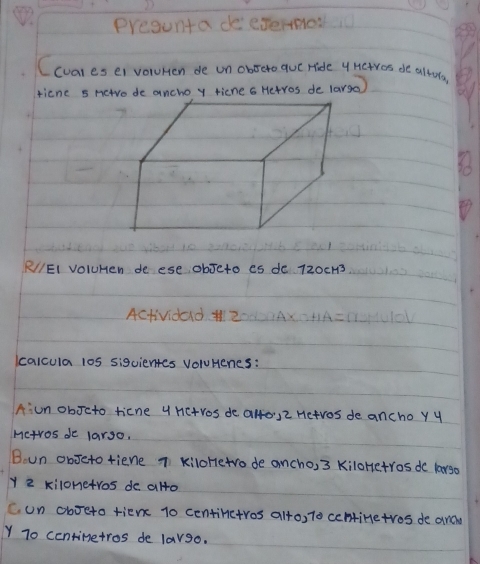 Pregunta de ejemplo:
¿Cual es el volumen de un objeto que mide 4 metros de altura,
tiene 5 metro de ancho y tiene 6 metros de largo?
R// El volumen de ese objeto es de 120cm³
Actividad # 2
calcula los siguientes volumenes:
A: un objeto tiene 4 metros de alto, 2 metros de ancho y 4
metros de largo.
B. un objeto tiene 1 kilometro de ancho, 3 kilometros de largo
y 2 kilometros de alto
C. un objeto tiene 10 centimetros alto, 10 centimetros de ancho
y 10 centimetros de largo.